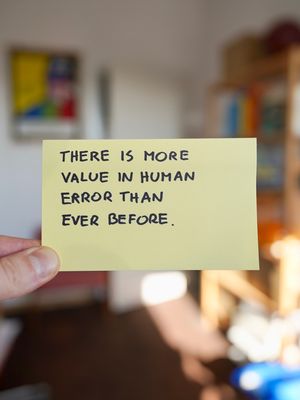 THERE IS MORE
VALUE IN HUMAN
ERROR THAN
EVER BEFORE.